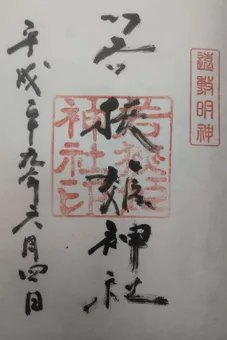 遠敷明神
若狭姫神社
若狭姫
神社印
平成二十九年六月四日